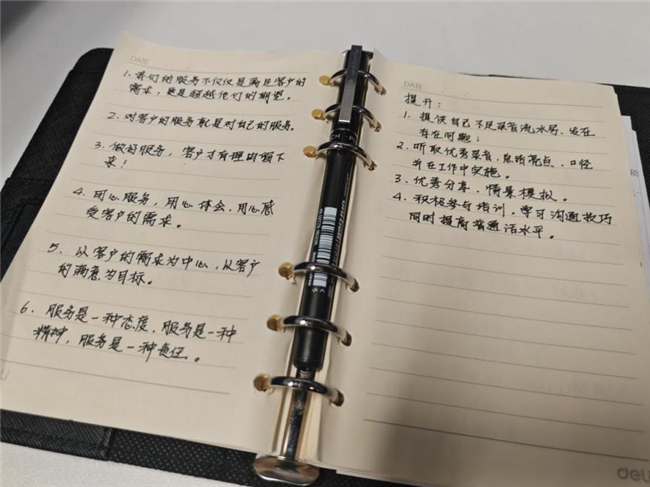 DATE
1. 我们的服务不仅仅是满足客户的
需求，更是超越他们的期望。
2. 对客户的服务就是对自己的服务。
3. 做好服务，客户才有理由留下
来！
4. 用心服务，用心体会，用心感
受客户的需求。
5. 以客户的需求为中心，以客户
的满意为目标。
6. 服务是一种态度，服务是一种
精神，服务是一种责任。
DATE
提升：
1. 提供自己不足录音流水号，
存在问题；
2. 听取优秀录音，总结亮点、口径
并在工作中实施。
3. 优秀分享，情景模拟。
4. 积极参与培训，学习沟通技巧
同时提高普通话水平。
deli